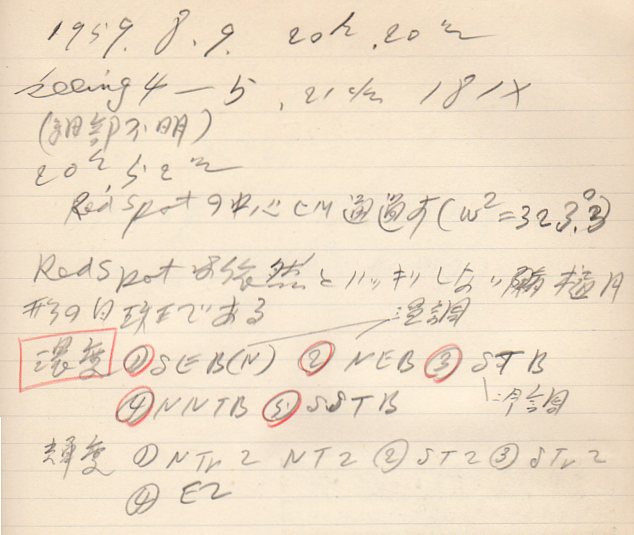 1959. 8. 9. 20h.20m
seeing 4—5, 21cm 181X
(細部不明)
20h.52m
Red Spotの中心CM通過す(ω²=323.°3)
Red Spotは依然とハッキリしない楕円
形の白斑である
濃調
濃度 ①SEB(N) ② NEB ③ STB
④NNTB ⑤SSTB 淡調
輝度 ①NTrZ NTZ ②STZ ③STrZ
④ EZ